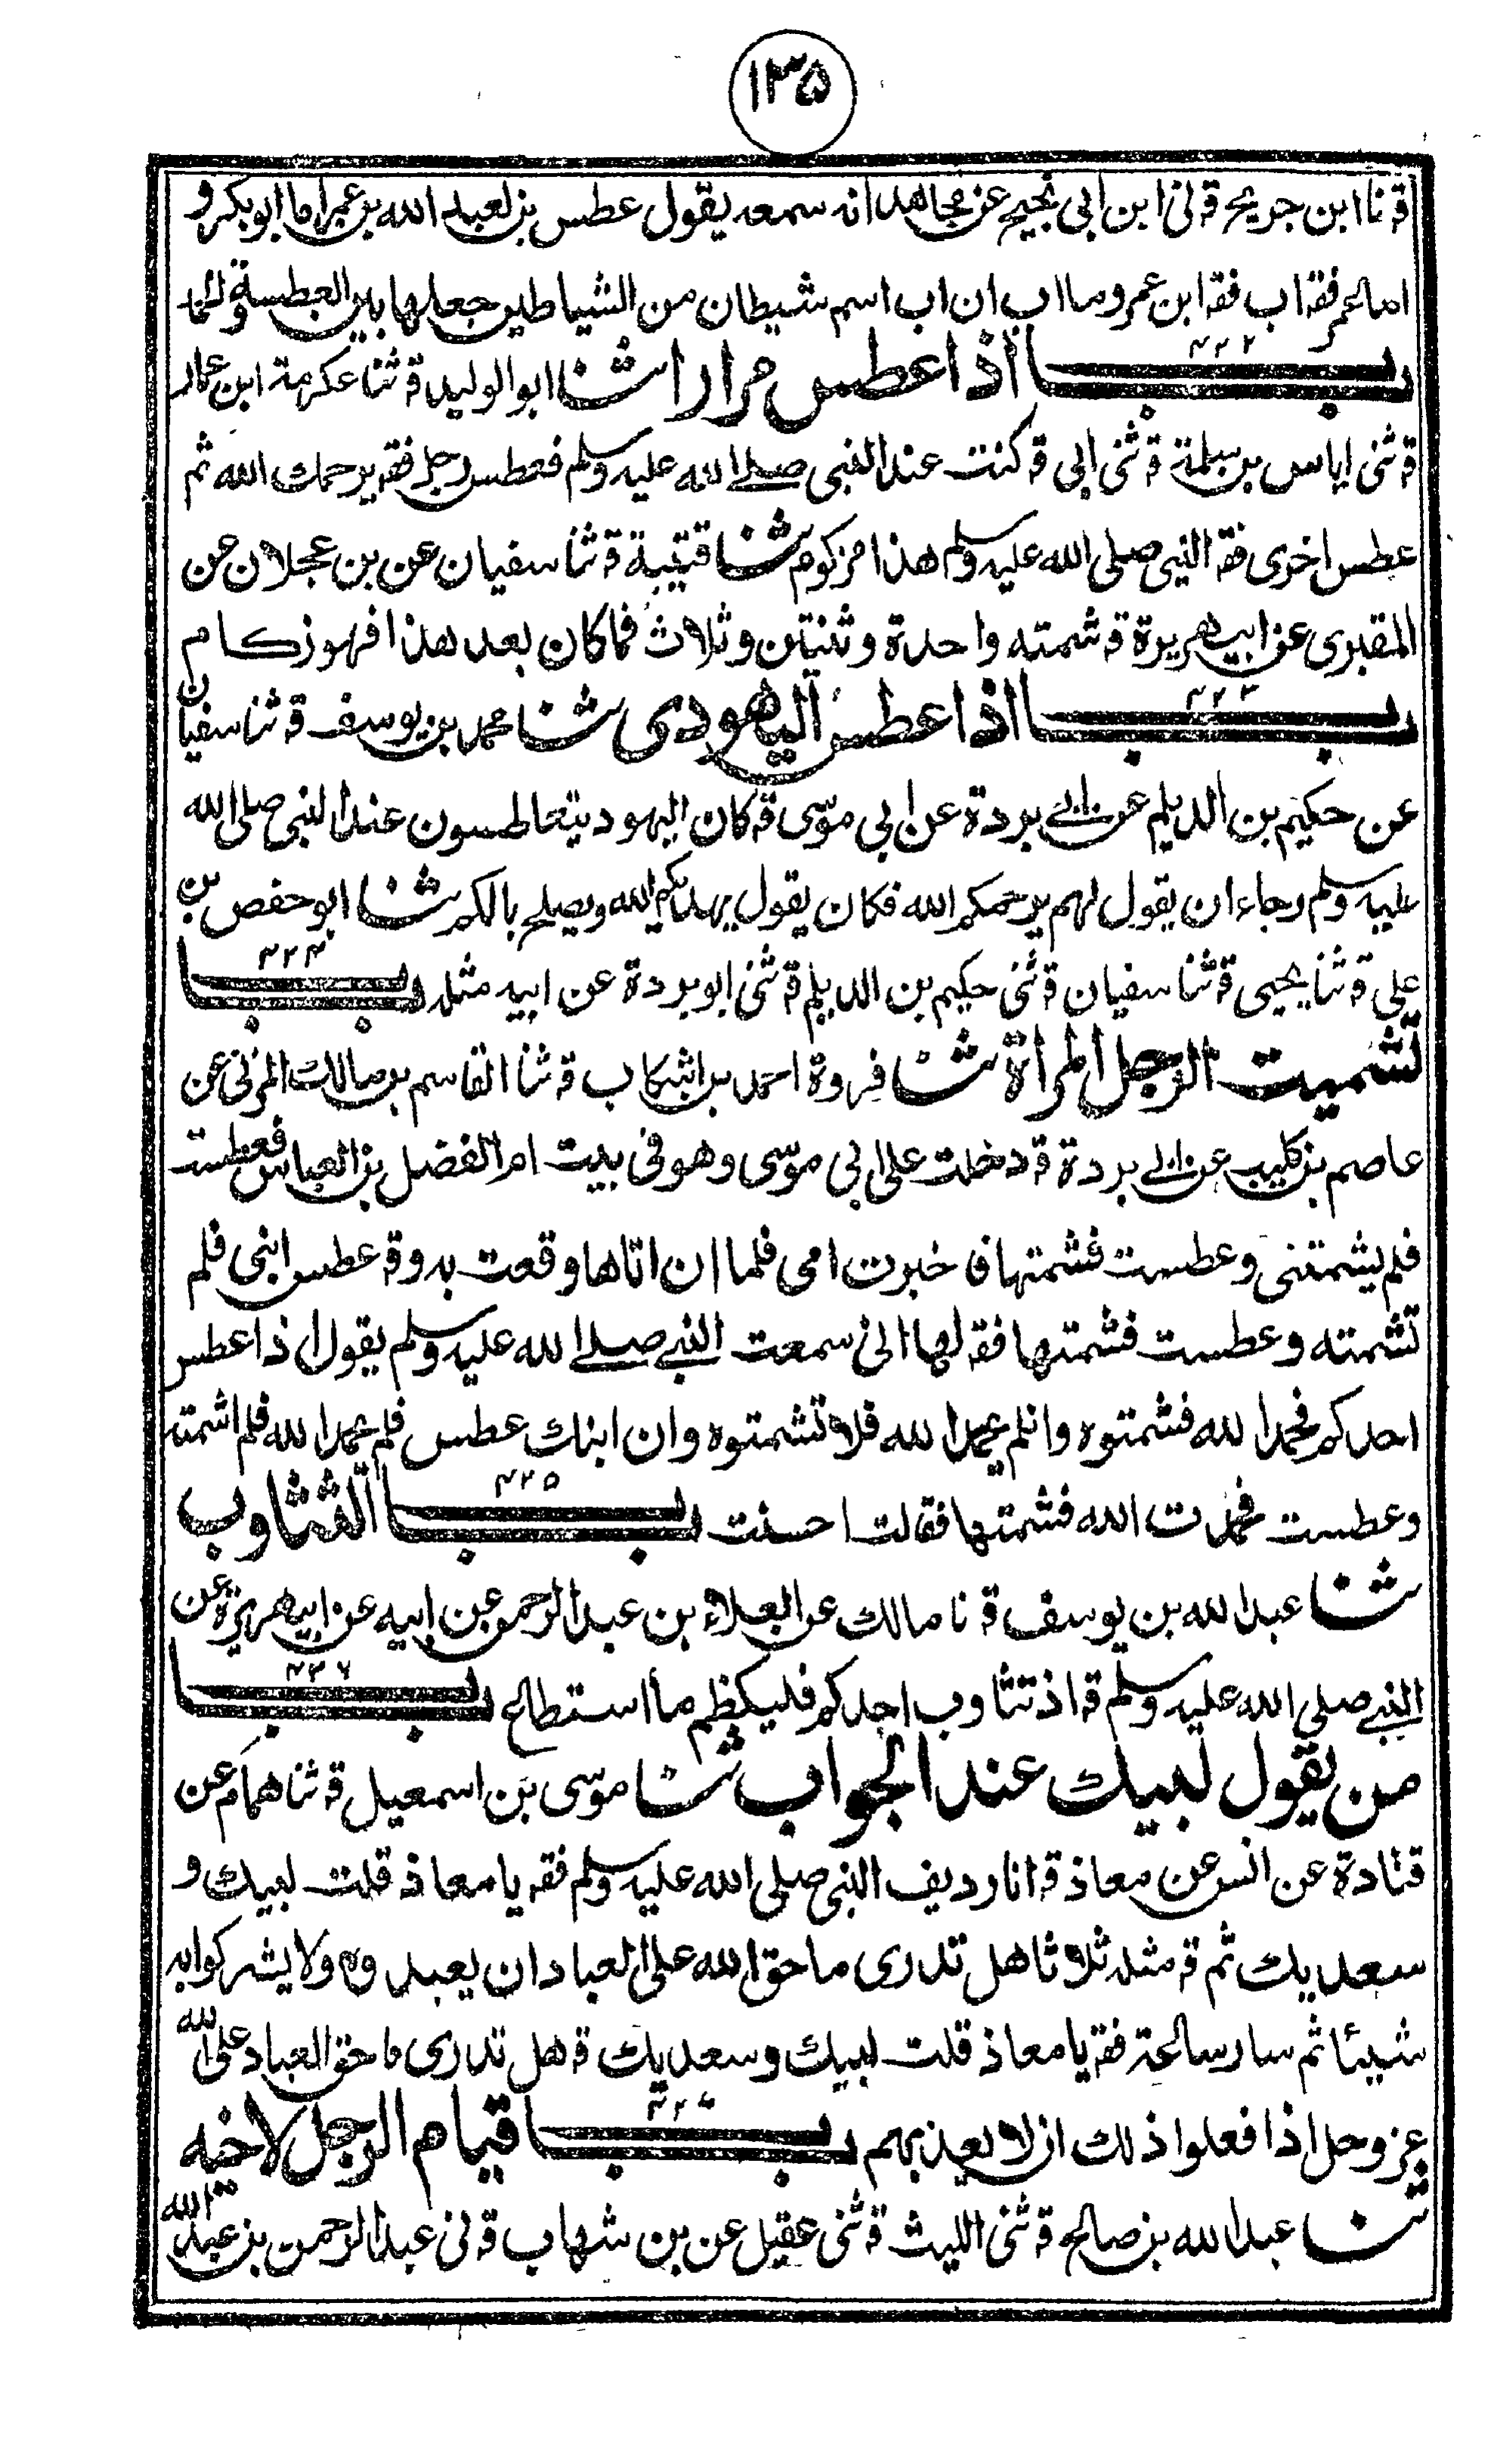 ١٣٥
قۃ نا ابن جريج قۃ نی ابن ابی نجيح عن مجاهد انه سمعه يقول عطس بن لعبد الله بن عمر اما ابو بكر و
اما عمر فقۃ اب فقۃ ابن عمر وما اب ان اب اسم شيطان من الشياطين جعلها بين العطسة و
بــــاب ٤٢٢ اذا عطس مرارا ثنا ابو الوليد قۃ ثنا عكرمة ابن عمار
قۃ ثنی اياس بن سلمة قۃ ثنی ابی قۃ كنت عند النبی صلے الله عليه وسلم فعطس رجل فقۃ يرحمك الله ثم
عطس اخرى فقۃ النبی صلى الله عليه وسلم هذا مزكوم ثنا قتيبة قۃ ثنا سفيان عن بن عجلان عن
المقبری عن ابيهريرة قۃ شمته واحدة وثنتين وثلاث فما كان بعد هذا فهو زكام
بــــاب ٤٢٣ اذا عطس اليهودی ثنا محمد بن يوسف قۃ ثنا سفيان
عن حكيم بن الديلم عن ابے بردة عن ابی موسى قۃ كان اليهود يتعاطسون عند النبی صلى الله
عليه وسلم رجاء ان يقول لهم يرحمكم الله فكان يقول يهديكم الله ويصلح بالكم ثنا ابو حفص بن
علی قۃ ثنا يحيى قۃ ثنا سفيان قۃ ثنی حكيم بن الديلم قۃ ثنی ابو بردة عن ابيه مثله بــــاب ٤٢٤
تشميت الرجل المراة ثنا فروة احمد بن اشكاب قۃ ثنا القاسم بن مالك المزنی عن
عاصم بن كليب عن ابے بردة قۃ دخلت على ابی موسى وهو فی بيت ام الفضل بن العباس فعطست
فلم يشمتنی وعطست فشمتها فاخبرت امی فلما ان اتاها وقعت به وقۃ عطس ابنی فلم
تشمته وعطست فشمتها فقۃ لها انی سمعت النبے صلے الله عليه وسلم يقول اذا عطس
احدكم فحمد الله فشمتوه وان لم يحمد الله فلا تشمتوه وان ابنك عطس فلم يحمد الله فلم اشمته
وعطست فحمدت الله فشمتها فقالت احسنت بــــاب ٤٢٥ التثاوب
ثنا عبد الله بن يوسف قۃ نا مالك عن العلاء بن عبد الرحمن عن ابيه عن ابيهريرة عن
النبے صلى الله عليه وسلم قۃ اذ تثاوب احدكم فليكظم ما استطاع بــــاب ٤٢٦
من يقول لبيك عند الجواب ثنا موسى بن اسمعيل قۃ ثنا همام عن
قتادة عن انس عن معاذ قۃ انا رديف النبی صلى الله عليه وسلم فقۃ يا معاذ قلت لبيك و
سعديك ثم قۃ مثله ثلاثا هل تدری ما حق الله على العباد ان يعبدوه ولا يشركوا به
شيئا ثم سار ساعة فقۃ يا معاذ قلت لبيك وسعديك قۃ هل تدری ما حق العباد على الله
عز وجل اذا فعلوا ذلك ان لا يعذبهم بــــاب ٤٢٧ قيام الرجل لاخيه
ثنا عبد الله بن صالح قۃ ثنی الليث قۃ ثنی عقيل عن بن شهاب قۃ نی عبد الرحمن بن عبد الله